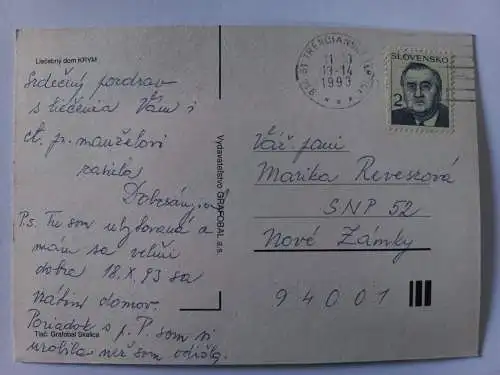 Liečebný dom KRYM
Srdečný pozdrav
s liečenia Vám i
ct. p. manželovi
zasiela
Ps. Tu som ubytovaná a
mám sa veľmi
dobre 18.X.93 sa
vrátim domov.
Poriadok s p. P. som si
urobila než som odišla.
Tlač: Grafobal Skalica
Vydavateľstvo GRAFOBAL a.s.
13-14
1993
SLOVENSKO
2
Váž. pani
Marika Reveszová
SNP 52
Nové Zámky
94001